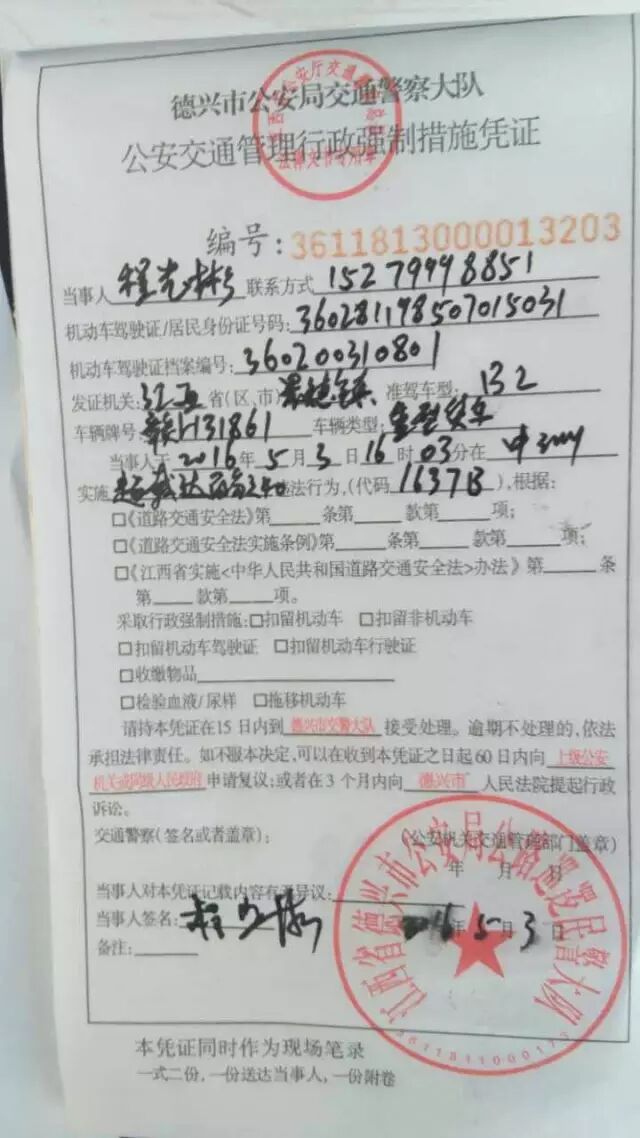 德兴市公安局交通警察大队
公安交通管理行政强制措施凭证
编号:3611813000013203
当事人 程 联系方式 15279998851
机动车驾驶证/居民身份证号码: 360281198507015031
机动车驾驶证档案编号: 360200310801
发证机关: 江西 省(区、市) 景德镇 准驾车型: B2
车辆牌号 赣H31861 车辆类型: 重型货车
当事人于 2016 年 5 月 3 日 16 时 03 分在
实施 违法行为,(代码 1637B ),根据:
□《道路交通安全法》第 条第 款第 项;
□《道路交通安全法实施条例》第 条第 款第 项;
□《江西省实施<中华人民共和国道路交通安全法>办法》第 条
第 款第 项。
采取行政强制措施:□扣留机动车 □扣留非机动车
□扣留机动车驾驶证 □扣留机动车行驶证
□收缴物品
□检验血液/尿样 □拖移机动车
请持本凭证在15日内到 德兴市交警大队 接受处理。逾期不处理的,依法
承担法律责任。如不服本决定,可以在收到本凭证之日起60日内向 上级公安
机关或同级人民政府 申请复议;或者在3个月内向 德兴市 人民法院提起行政
诉讼。
交通警察(签名或者盖章): (公安机关交通管理部门盖章)
年 月 日
当事人对本凭证记载内容有无异议:
当事人签名: 程 2016年5月3日
备注:
江西省德兴市公安局公路巡逻民警大队
3611811000173
本凭证同时作为现场笔录
一式二份,一份送达当事人,一份附卷